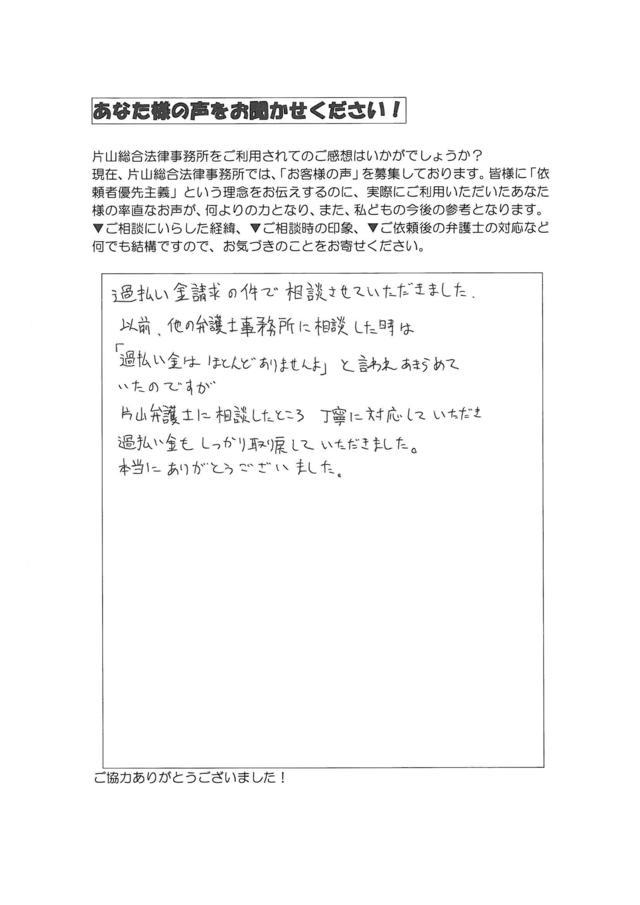 あなた様の声をお聞かせください！
片山総合法律事務所をご利用されてのご感想はいかがでしょうか？
現在、片山総合法律事務所では、「お客様の声」を募集しております。皆様に「依
頼者優先主義」という理念をお伝えするのに、実際にご利用いただいたあなた
様の率直なお声が、何よりの力となり、また、私どもの今後の参考となります。
▼ご相談にいらした経緯、▼ご相談時の印象、▼ご依頼後の弁護士の対応など
何でも結構ですので、お気づきのことをお寄せください。
過払い金請求の件で相談させていただきました.
以前、他の弁護士事務所に相談した時は
「過払い金はほとんどありませんよ」と言われあきらめて
いたのですが
片山弁護士に相談したところ 丁寧に対応していただき
過払い金もしっかり取り戻していただきました。
本当にありがとうございました。
ご協力ありがとうございました！